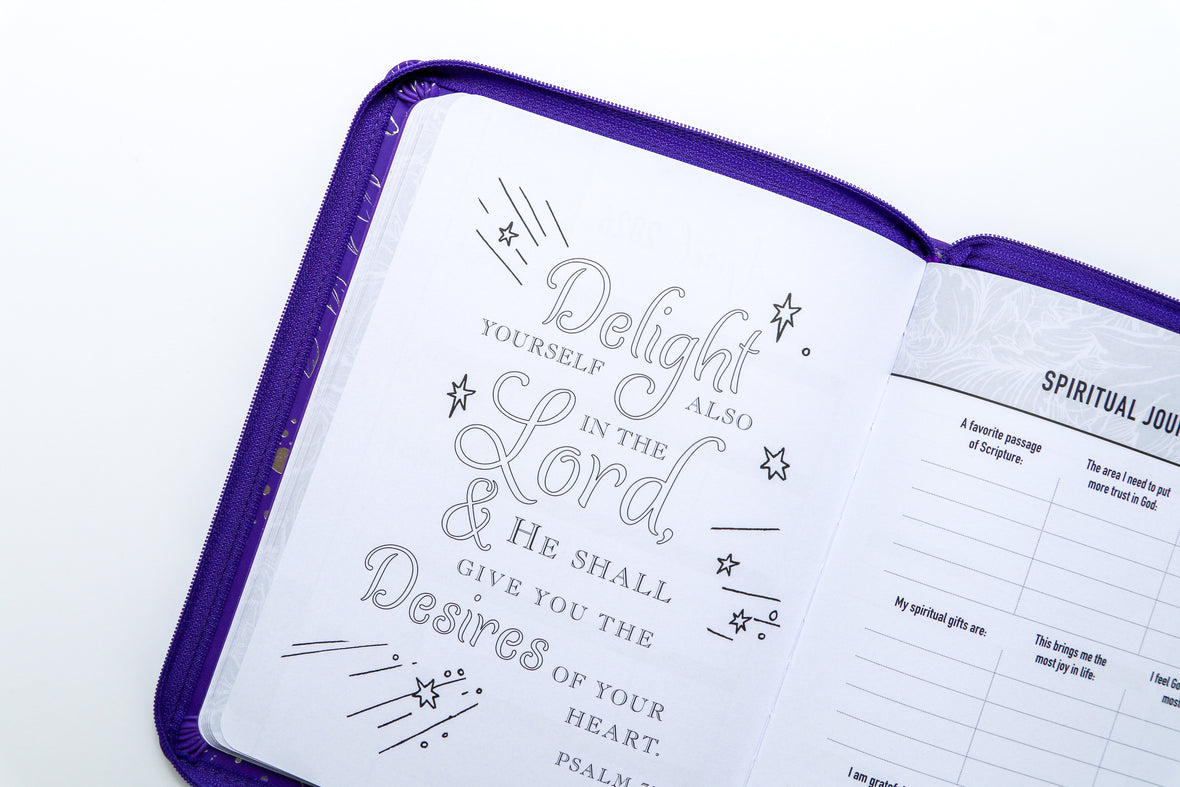 Delight
YOURSELF
ALSO
IN THE
Lord,
& HE SHALL
GIVE YOU THE
Desires
OF YOUR
HEART.
PSALM
SPIRITUAL
A favorite passage
of Scripture:
The area I need to put
more trust in God:
My spiritual gifts are:
This brings me the
most joy in life:
I feel
most
I am